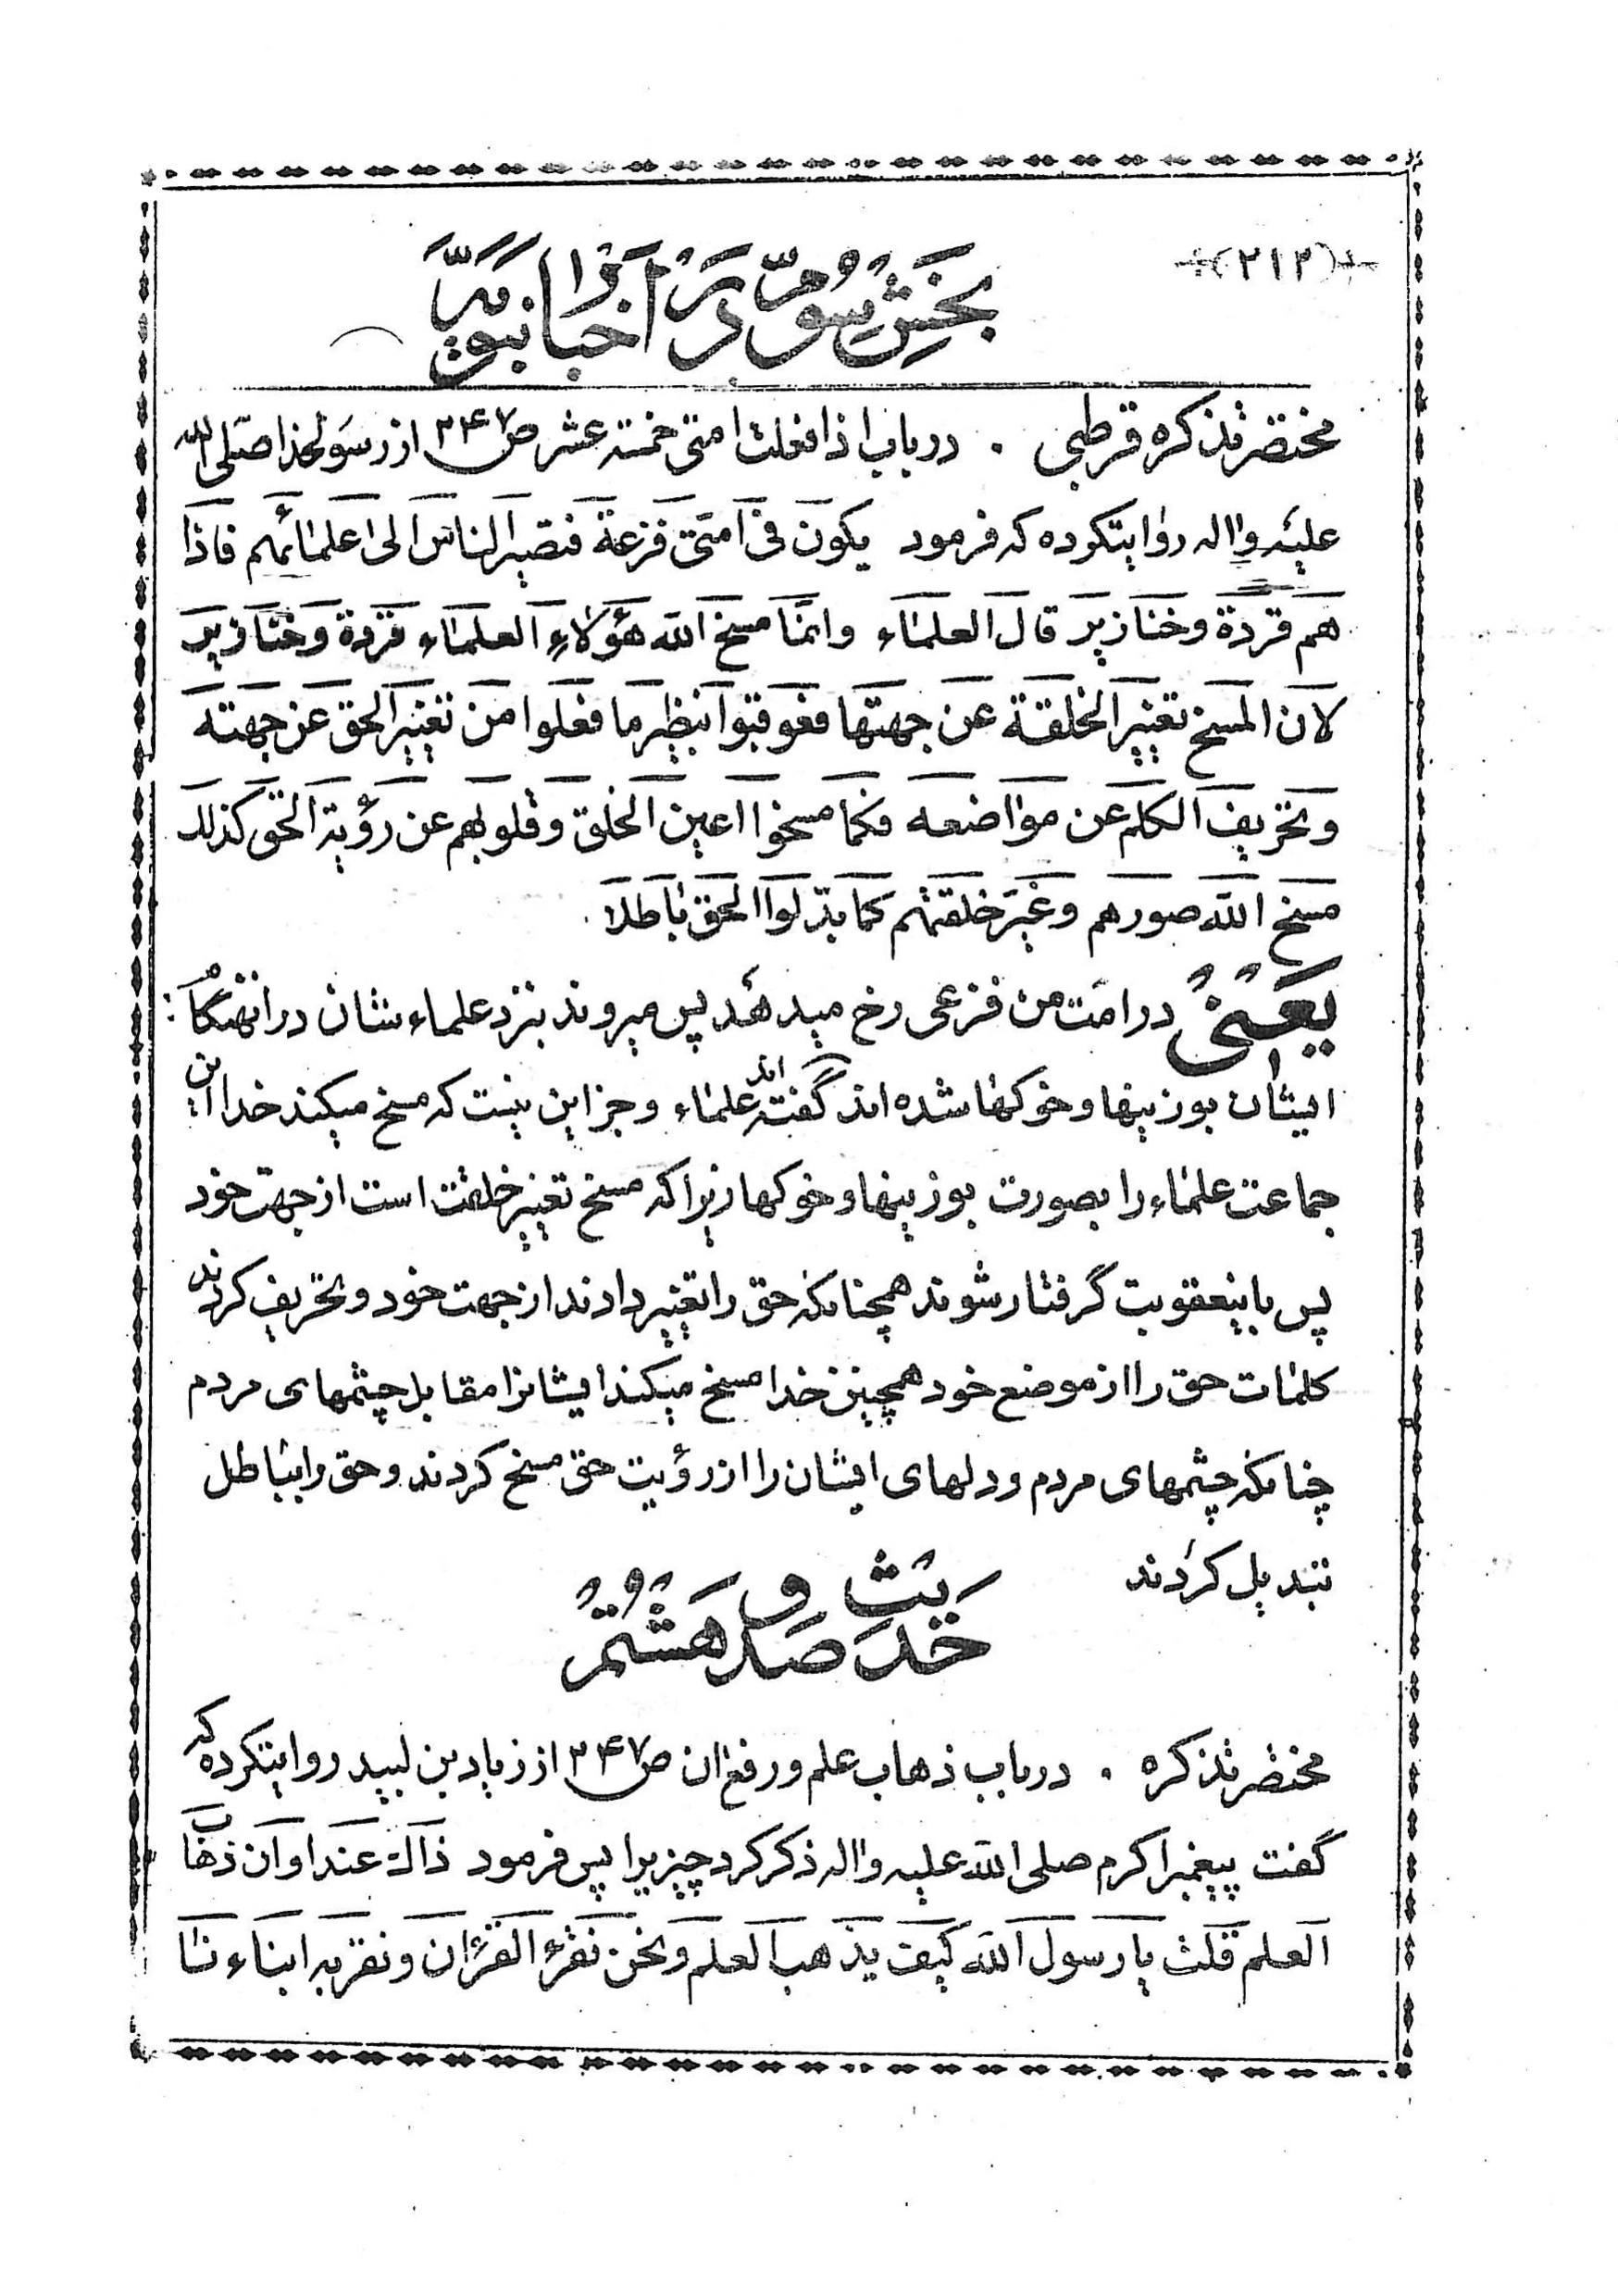 (۲۱۲)
بخش سوم در اخبار نبویه
مختصر تذکره قرطبی . در باب اذا فعلت امتی خمسة عشر ص۲۴۷ از رسولخدا صلی الله
علیه واله روایتکرده که فرمود یکون فی امتی فزعة فتصیر الناس الی علمائهم فاذا
هم قردة وخنازیر قال العلماء وانما مسخ الله هؤلاء العلماء قردة وخنازیر
لان المسخ تغییر الخلقة عن جهتها فعوقبوا بنظیر ما فعلوا من تغییر الحق عن جهته
وتحریف الکلم عن مواضعه فکما مسخوا اعین الخلق وقلوبهم عن رؤیة الحق کذلک
مسخ الله صورهم وغیر خلقتهم کما بدلوا الحق باطلا.
یعنی در امت من فزعی رخ میدهد پس میروند بنزد علماءشان در انهنگام
ایشان بوزینها وخوکها شده اند گفته اند علماء وجز این نیست که مسخ میکند خدا این
جماعت علماء را بصورت بوزینها وخوکها زیرا که مسخ تغییر خلقت است از جهت خود
پس باینعقوبت گرفتار شوند همچنانکه حق را تغییر دادند از جهت خود وتحریف کردند
کلمات حق را از موضع خود همچنین خدا مسخ میکند ایشانرا مقابل چشمهای مردم
چنانکه چشمهای مردم ودلهای ایشان را از رؤیت حق مسخ کردند وحق را بباطل
تبدیل کردند
حدیث صد و هشتم
مختصر تذکره . در باب ذهاب علم ورفع ان ص۲۴۷ از زیاد بن لبید روایتکرده که
گفت پیغمبر اکرم صلی الله علیه واله ذکر کرد چیزیرا پس فرمود ذاک عند اوان ذهاب
العلم قلت یا رسول الله کیف یذهب العلم ونحن نقرء القرءان ونقربه ابناءنا